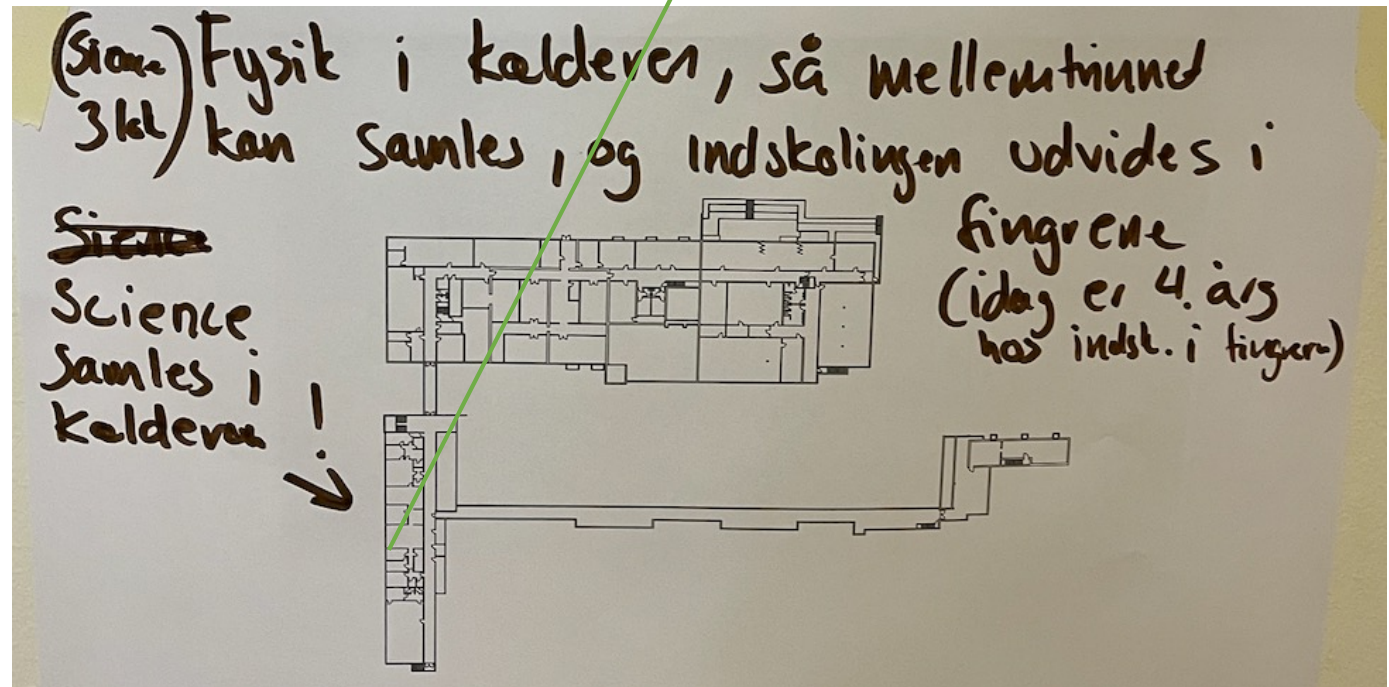 Fysik i kælderen, så mellemtrinnet
kan samles, og indskolingen udvides i
fingrene
(idag er 4. årg
hos indsk. i fingrene)
Science
Samles i
Kælderen !